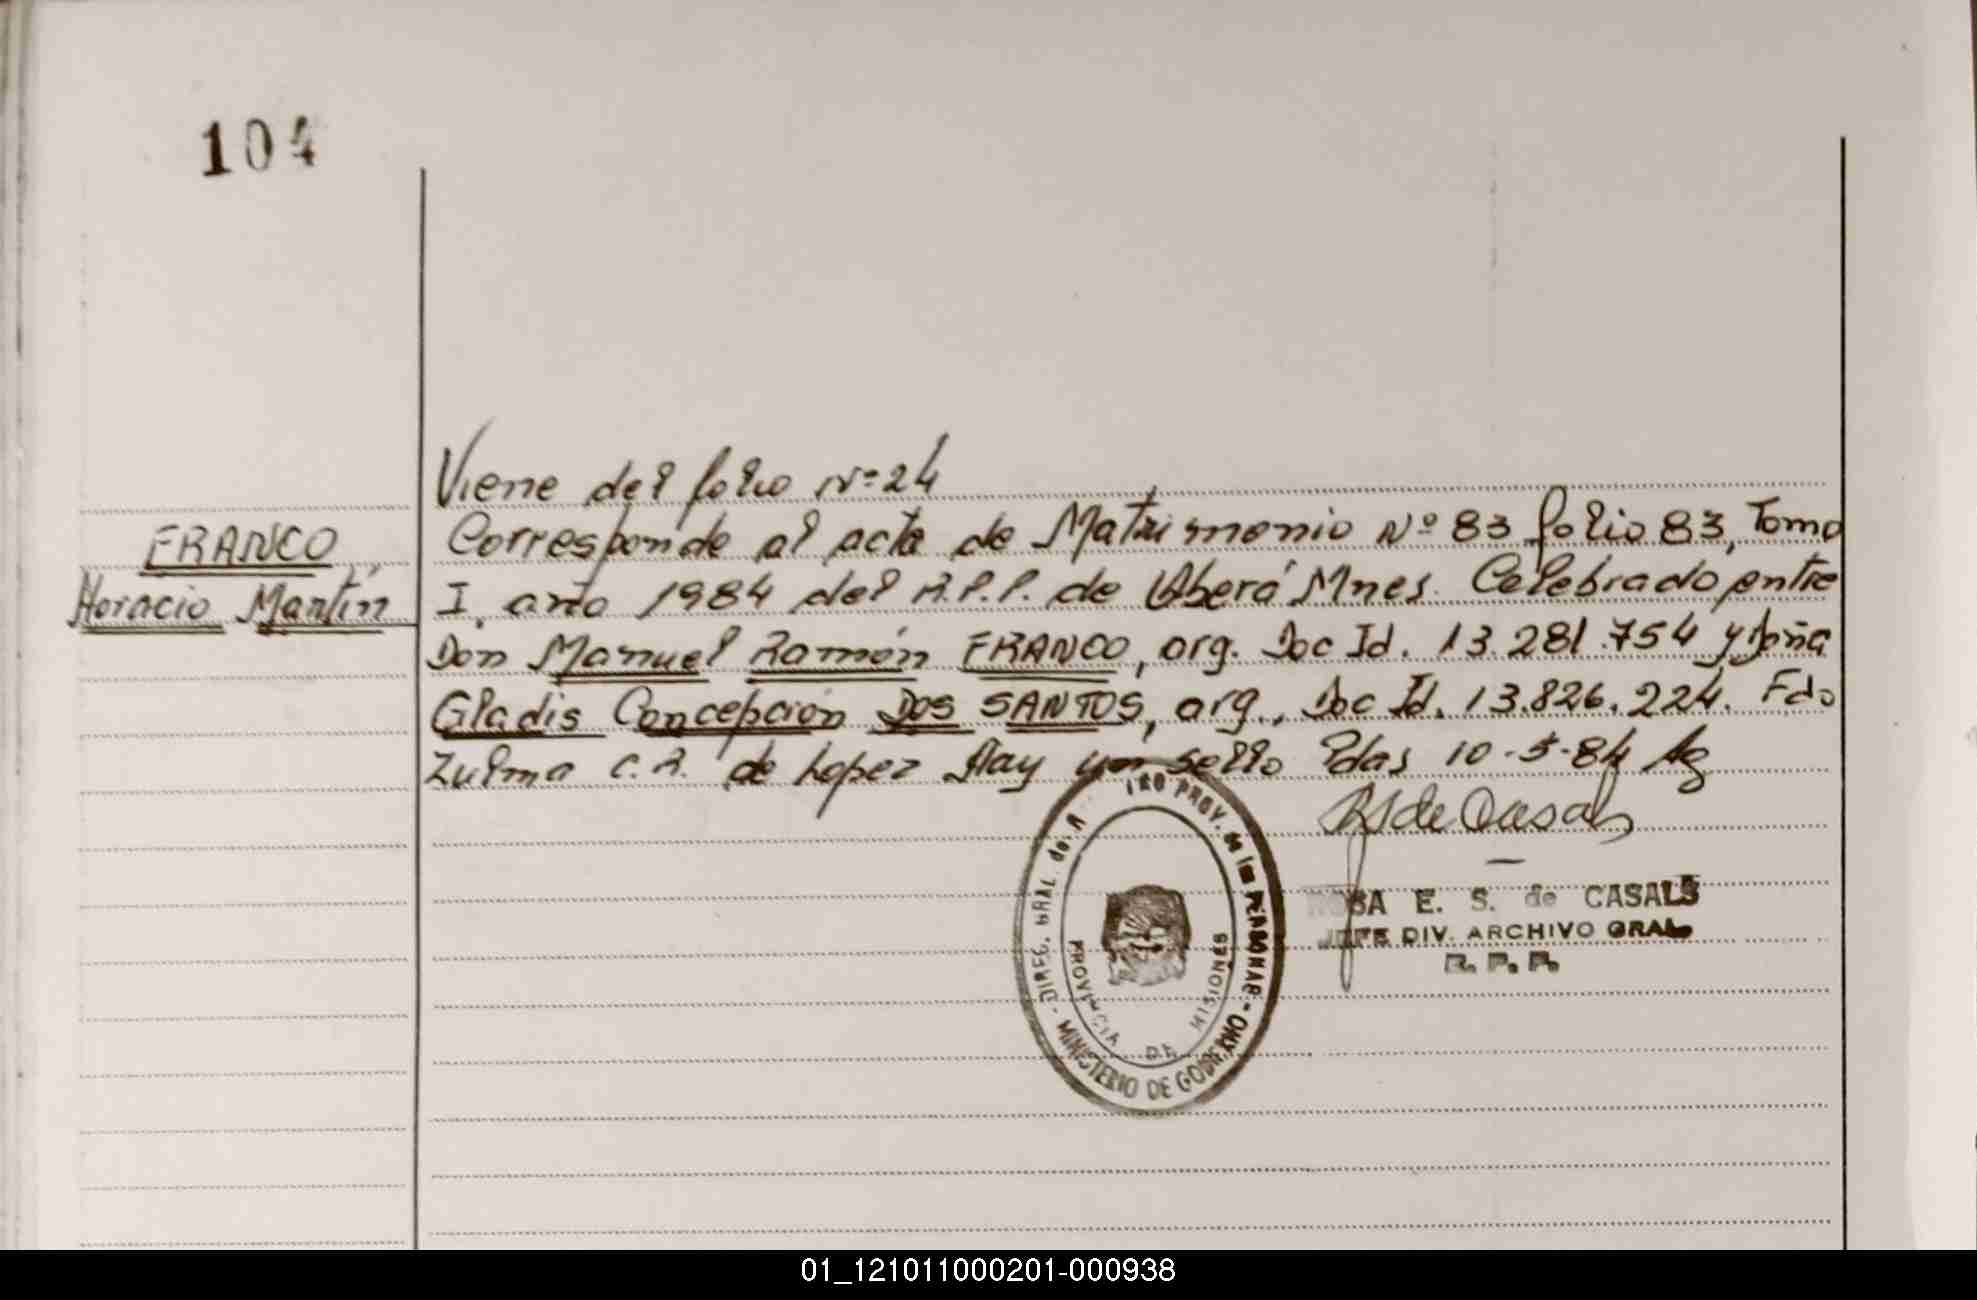 104
FRANCO
Horacio Martín
Viene del folio Nº 24
Corresponde al acta de Matrimonio Nº 83 folio 83, Tomo
I, año 1984 del R.P.P. de Oberá Mnes. Celebrado entre
Don Manuel Ramón FRANCO, arg. Doc Id. 13.281.754 y doña
Gladis Concepción DOS SANTOS, arg., Doc Id. 13.826.224. Fdo
Zulma C. R. de Lopez Hay un sello Pdas 10-5-84
RS de Casals
ROSA E. S. de CASALS
JEFE DIV. ARCHIVO GRAL.
R. P. P.
DIREC. GRAL. del R TRO PROV. de las PERSONAS - MINISTERIO DE GOBIERNO -
PROVINCIA DE MISIONES
01_121011000201-000938